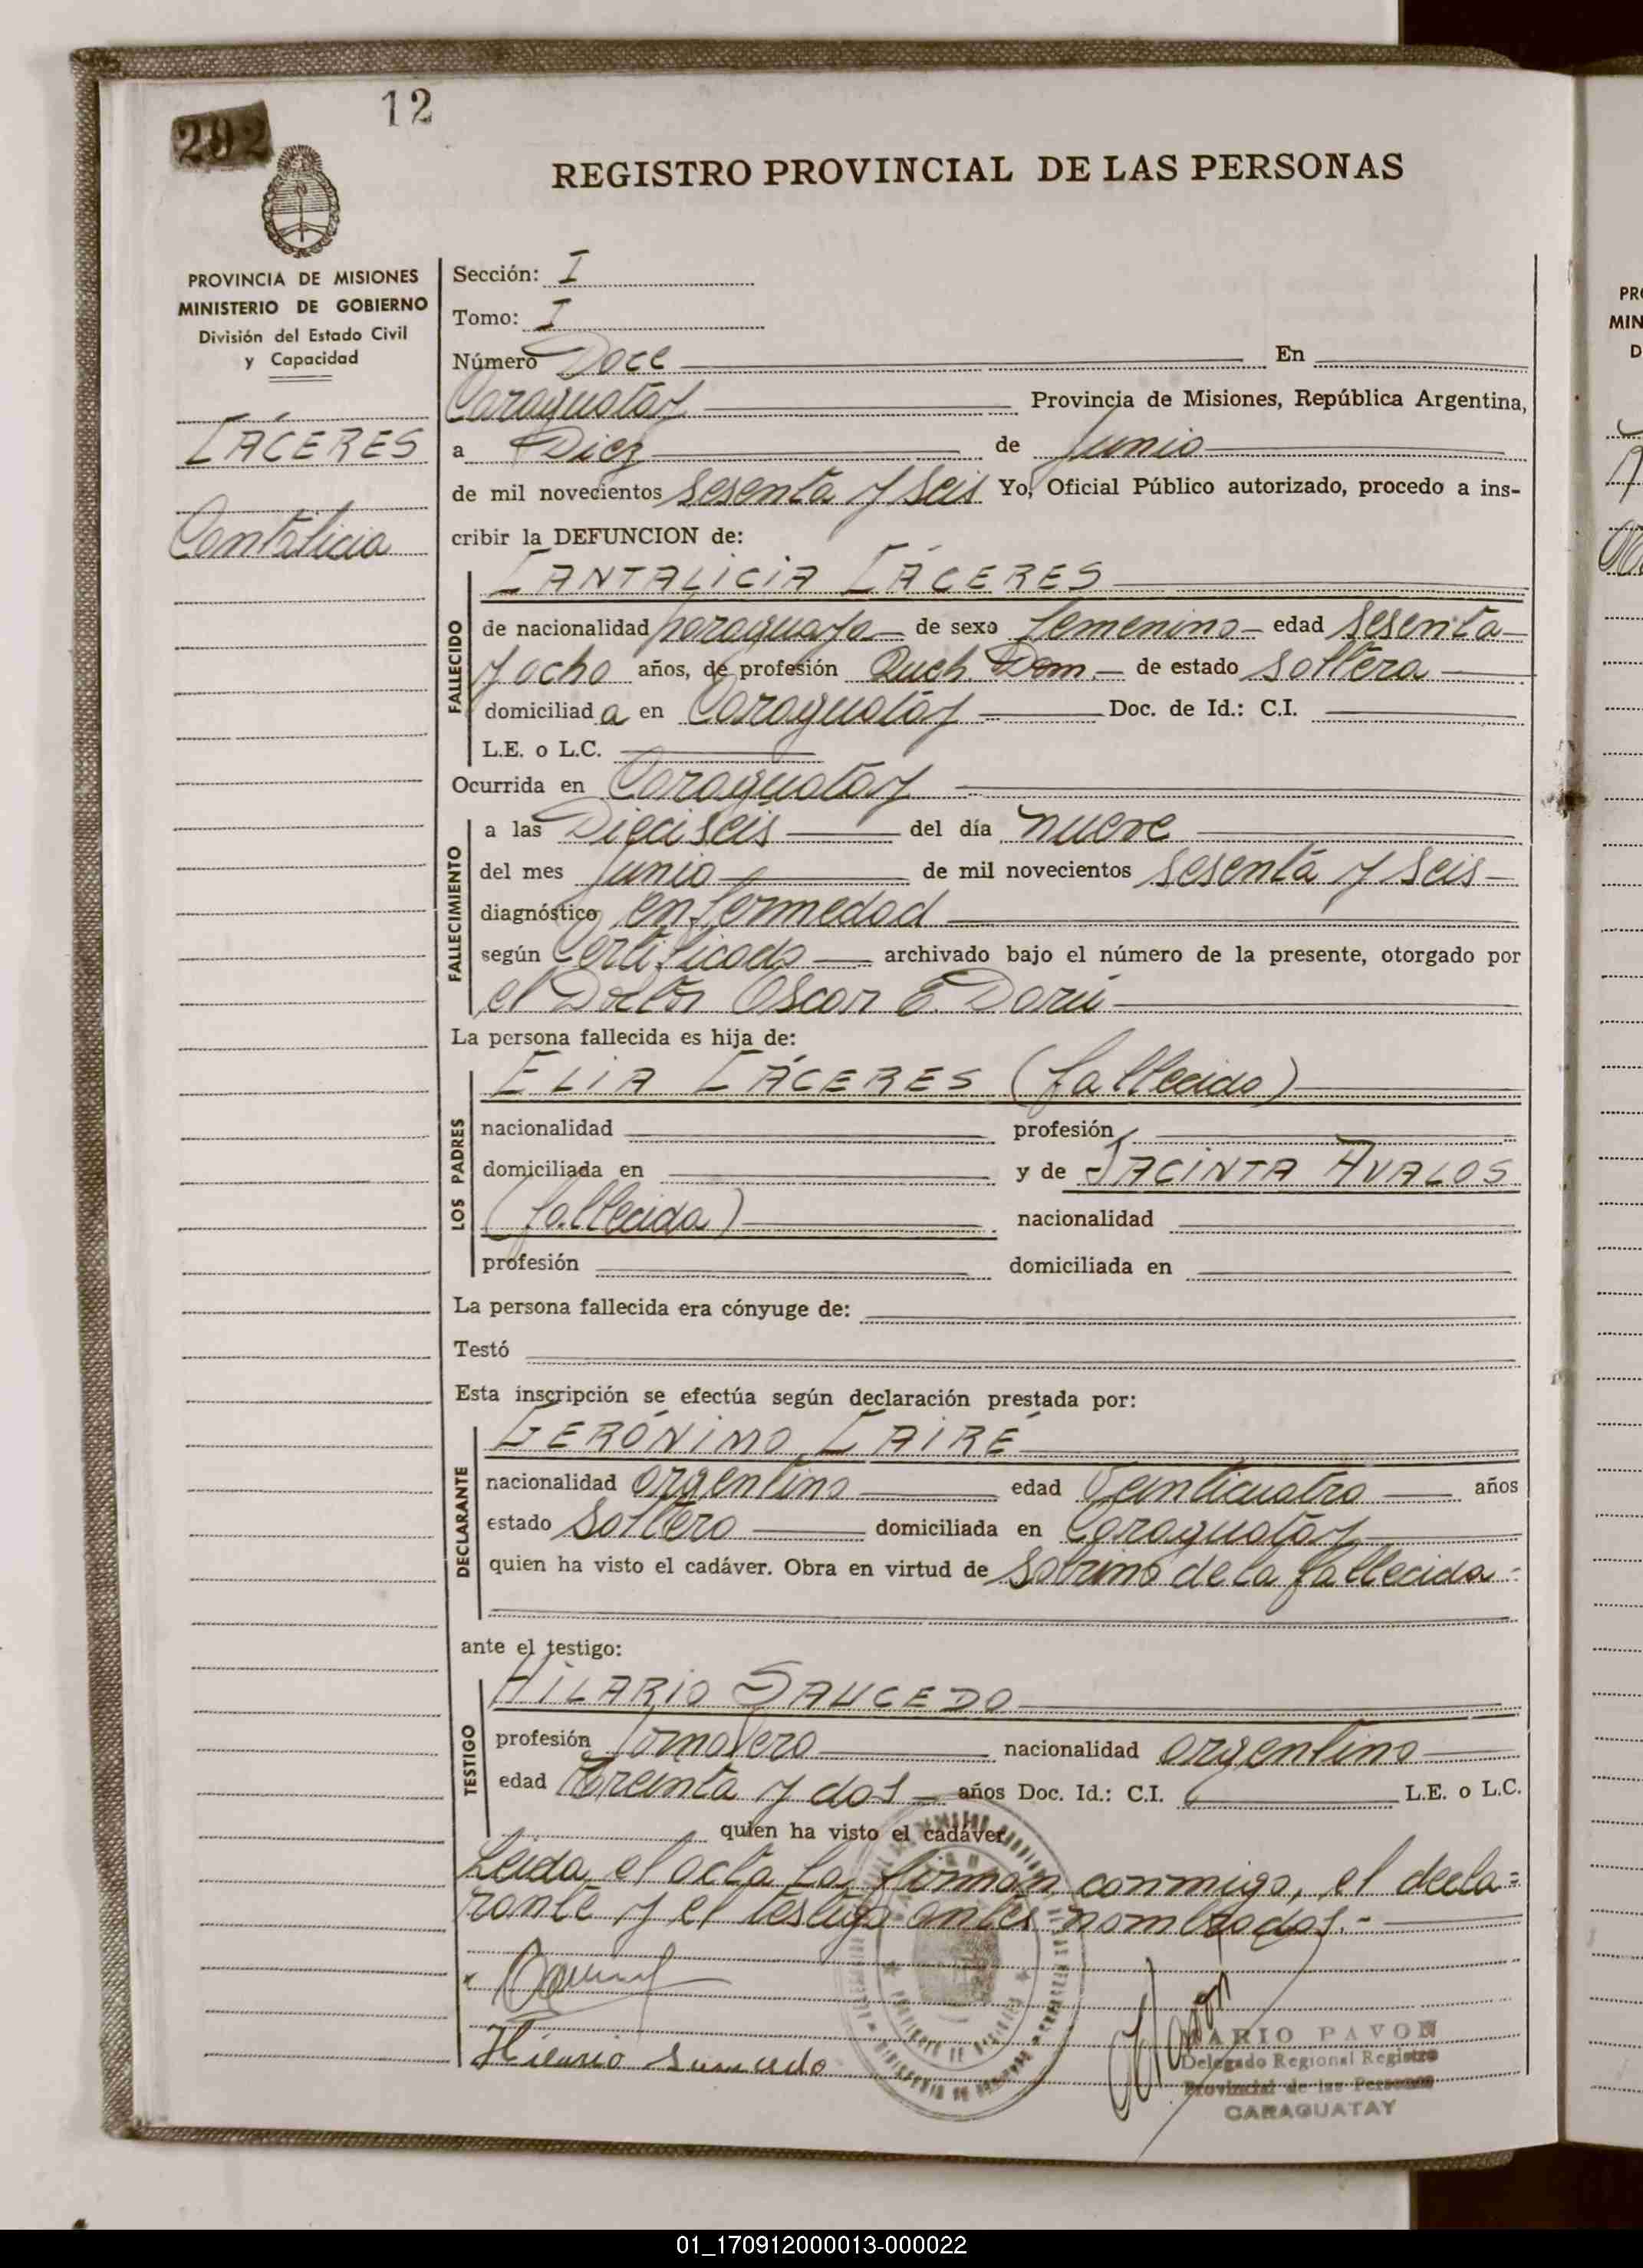 12
292
REGISTRO PROVINCIAL DE LAS PERSONAS
PROVINCIA DE MISIONES
MINISTERIO DE GOBIERNO
División del Estado Civil
y Capacidad
CÁCERES
Cantalicia
Sección: I
Tomo: I
Número Doce En
Caraguatay Provincia de Misiones, República Argentina,
a Diez de Junio
de mil novecientos sesenta y seis Yo, Oficial Público autorizado, procedo a ins-
cribir la DEFUNCION de:
CANTALICIA CÁCERES
FALLECIDO
de nacionalidad paraguaya de sexo femenino edad sesenta
y ocho años, de profesión Queh. Dom. de estado soltera
domiciliada en Caraguatay Doc. de Id.: C.I.
L.E. o L.C.
Ocurrida en Caraguatay
FALLECIMIENTO
a las Dieciseis del día nueve
del mes Junio de mil novecientos sesenta y seis
diagnóstico enfermedad
según Certificado archivado bajo el número de la presente, otorgado por
el Doctor Oscar E. Darú
La persona fallecida es hija de:
LOS PADRES
ELIA CÁCERES (fallecido)
nacionalidad profesión
domiciliada en y de JACINTA AVALOS
(fallecida) nacionalidad
profesión domiciliada en
La persona fallecida era cónyuge de:
Testó
Esta inscripción se efectúa según declaración prestada por:
DECLARANTE
GERÓNIMO CAIRÉ
nacionalidad argentino edad Veinticuatro años
estado Soltero domiciliada en Caraguatay
quien ha visto el cadáver. Obra en virtud de sobrino de la fallecida.
ante el testigo:
TESTIGO
HILARIO SAUCEDO
profesión Jornalero nacionalidad argentino
edad Treinta y dos años Doc. Id.: C.I. L.E. o L.C.
quien ha visto el cadáver
Leida el acta la firman conmigo, el decla=
rante y el testigo antes nombrados.-
Hilario Saucedo
MARIO PAVON
Delegado Regional Registro
Provincial de las Personas
CARAGUATAY
01_170912000013-000022